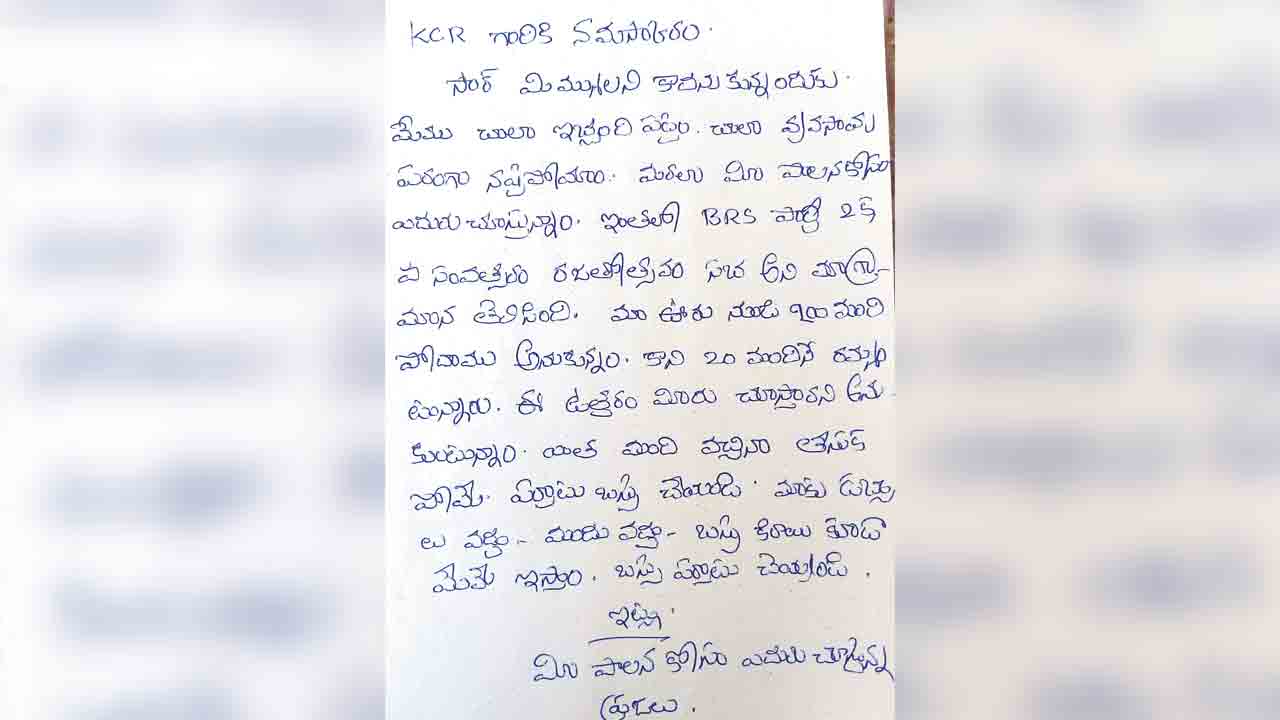 KCR గారికి నమస్కారం.
సార్ మిమ్ములని కాదనుకున్నందుకు.
మేము చాలా ఇబ్బంది పడ్డాం. చాలా వ్యవసాయ
పరంగా నష్టపోయాం. మరలా మీ పాలనకోసం
ఎదురు చూస్తున్నాం. ఇంతలో BRS పార్టీ 25
వ సంవత్సరం రజతోత్సవం సభ అని మాగ్రా-
మాన తెలిసింది. మా ఊరు నుండి 900 మంది
పోదాము అనుకున్నం. కాని 20 మందినే రమ్మం
టున్నారు. ఈ ఉత్తరం మీరు చూస్తారని అను
కుంటున్నాం. యింత మంది వచ్చినా తీసుక
పోయే. ఏర్పాటు బస్సు చేయండి. మాకు డబ్బు
లు వద్దు - మందు వద్దు - బస్సు కిరాలు కూడా
మేమే ఇస్తాం. బస్సు ఏర్పాటు చెయ్యండి.
ఇట్లు.
మీ పాలన కోసం ఎదురు చూస్తున్న
ప్రజలు.